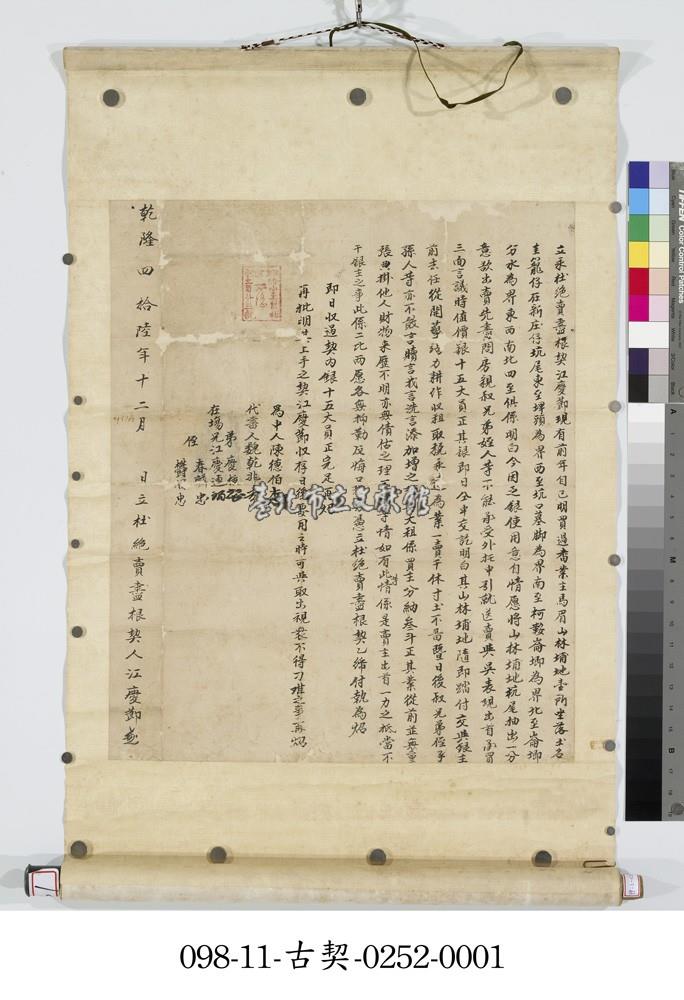 立永杜絕賣盡根契江慶鄞現有前年自己明買過番業主馬眉山林埔地壹所坐落土名
圭籠仔石新庄仔坑尾東至埤頭為界西至坑口墓脚為界南至柯數崙埫為界北至崙埫
分水為界東西南北四至俱係明白今因乏銀使用愈自情愿將山林埔地坑尾抽出一分
意欲出賣先盡問房親叔兄弟姪人等不能承受外托中引就送賣與吳表現出首承買
三面言議時值價銀十五大員正其銀即日仝中交訖明白其山林埔地隨即踏付交與銀主
前去任從開墾活力耕作收租取税永為業一賣千休寸土不留暨日後叔兄弟侄子
孫人等亦不敢言贖言找言洗言添加增之大租係買主分納叁斗正其業從前並無重
張典掛他人財物來歷不明亦無債估之理等情如有此情係是賣主出首一力之抵當不
干銀主之事此係二比兩愿各無抑勒反悔口憑立杜絕賣盡根契乙紙付執為炤
即日收過契內銀十五大員正完足再炤
再批明其上手之契江慶鄞收存日後要用之時可與取出視衆不得刁难之事再炤
為中人陳德伯
代書人魏乾非
弟慶
在場兄江慶通
侄春 忠
忠
乾隆四拾陸年十二月 日立杜絕賣盡根契人江慶鄞
臺北市立文獻館
098-11-古契-0252-0001
TIFFEN Color Control Patches